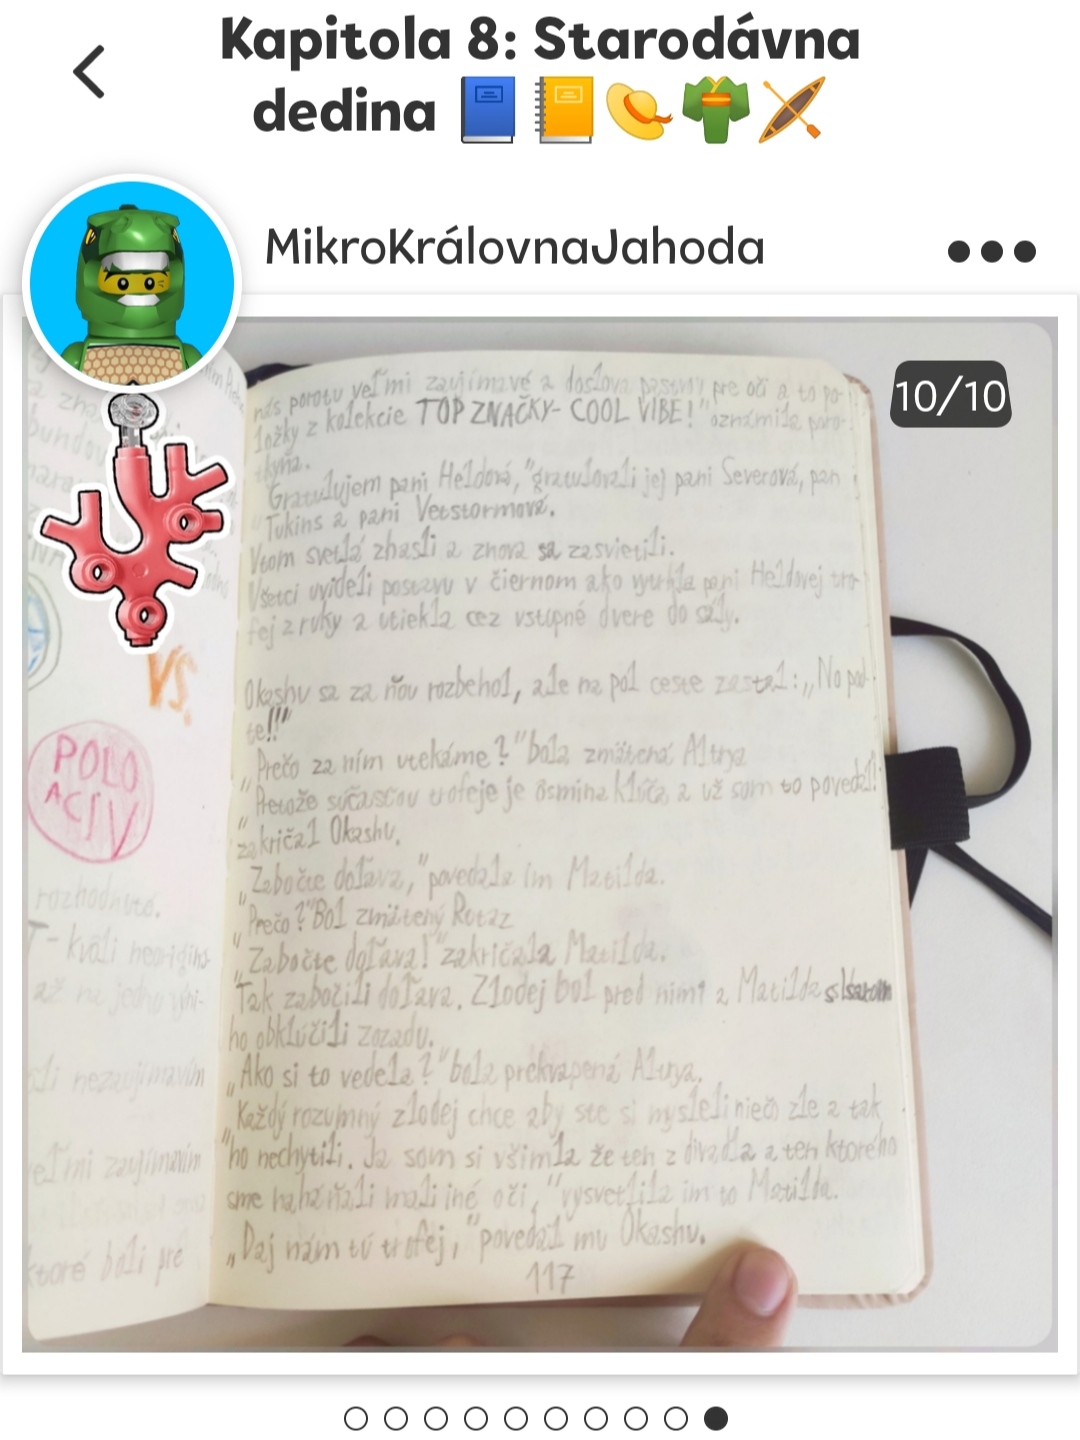 Kapitola 8: Starodávna
dedina
MikroKrálovnaJahoda
10/10
nás porotu veľmi zaujímavé a doslova pre oči a to po-
ložky z kolekcie TOP ZNAČKY- COOL VIBE!" oznámila poro-
tkyňa.
"Gratulujem pani Heldová," gratulovali jej pani Severová, pan
Tukins a pani Vetstormová.
Vtom svetlá zhasli a znova sa zasvietili.
Všetci uvideli postavu v čiernom ako vytrhla pani Heldovej tro-
fej z ruky a utiekla cez vstupné dvere do sály.
Okashu sa za ňou rozbehol, ale na pol ceste zastal: „No poď-
te!!"
„Prečo za ním utekáme?" bola zmätená Altrya
„Pretože súčasťou trofeje je ôsmina kľúča a už som to povedal!
zakričal Okashu.
„Zabočte doľava," povedala im Matilda.
„Prečo?" Bol zmätený Rotaz
„Zabočte doľava!" zakričala Matilda.
Tak zabočili doľava. Zlodej bol pred nimi a Matilda s
ho obkľúčili zozadu.
„Ako si to vedela?" bola prekvapená Altrya.
„Každý rozumný zlodej chce aby ste si mysleli niečo zle a tak
ho nechytili. Ja som si všimla že ten z divadla a ten ktorého
sme naháňali mali iné oči," vysvetlila im to Matilda.
„Daj nám tú trofej," povedal mu Okashu.
117
VS.
POLO
ACIV
rozhodnute.
T - kvôli neorigina
až na jednu
nezaujímavím
veľmi zaujímavím
ktoré boli pre